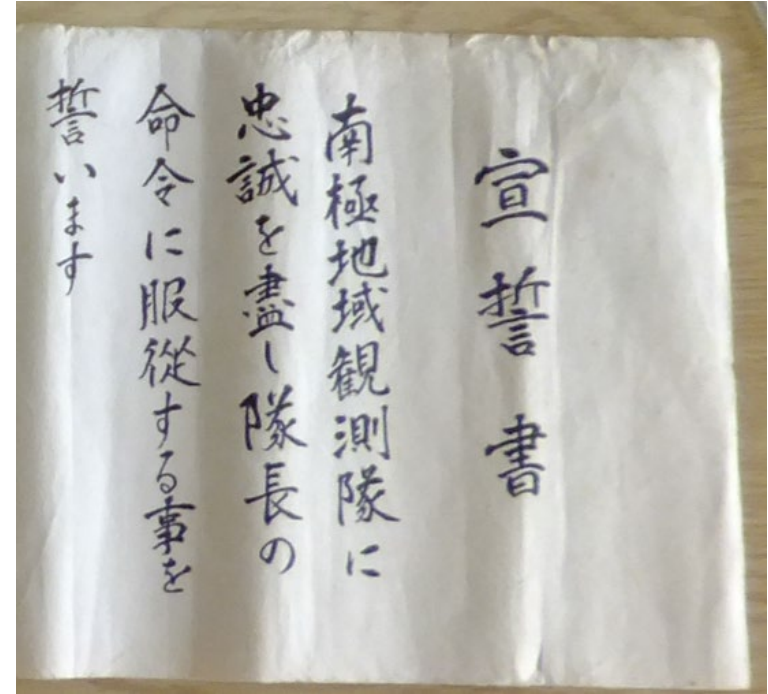 宣誓書
南極地域観測隊に
忠誠を盡し隊長の
命令に服従する事を
誓います